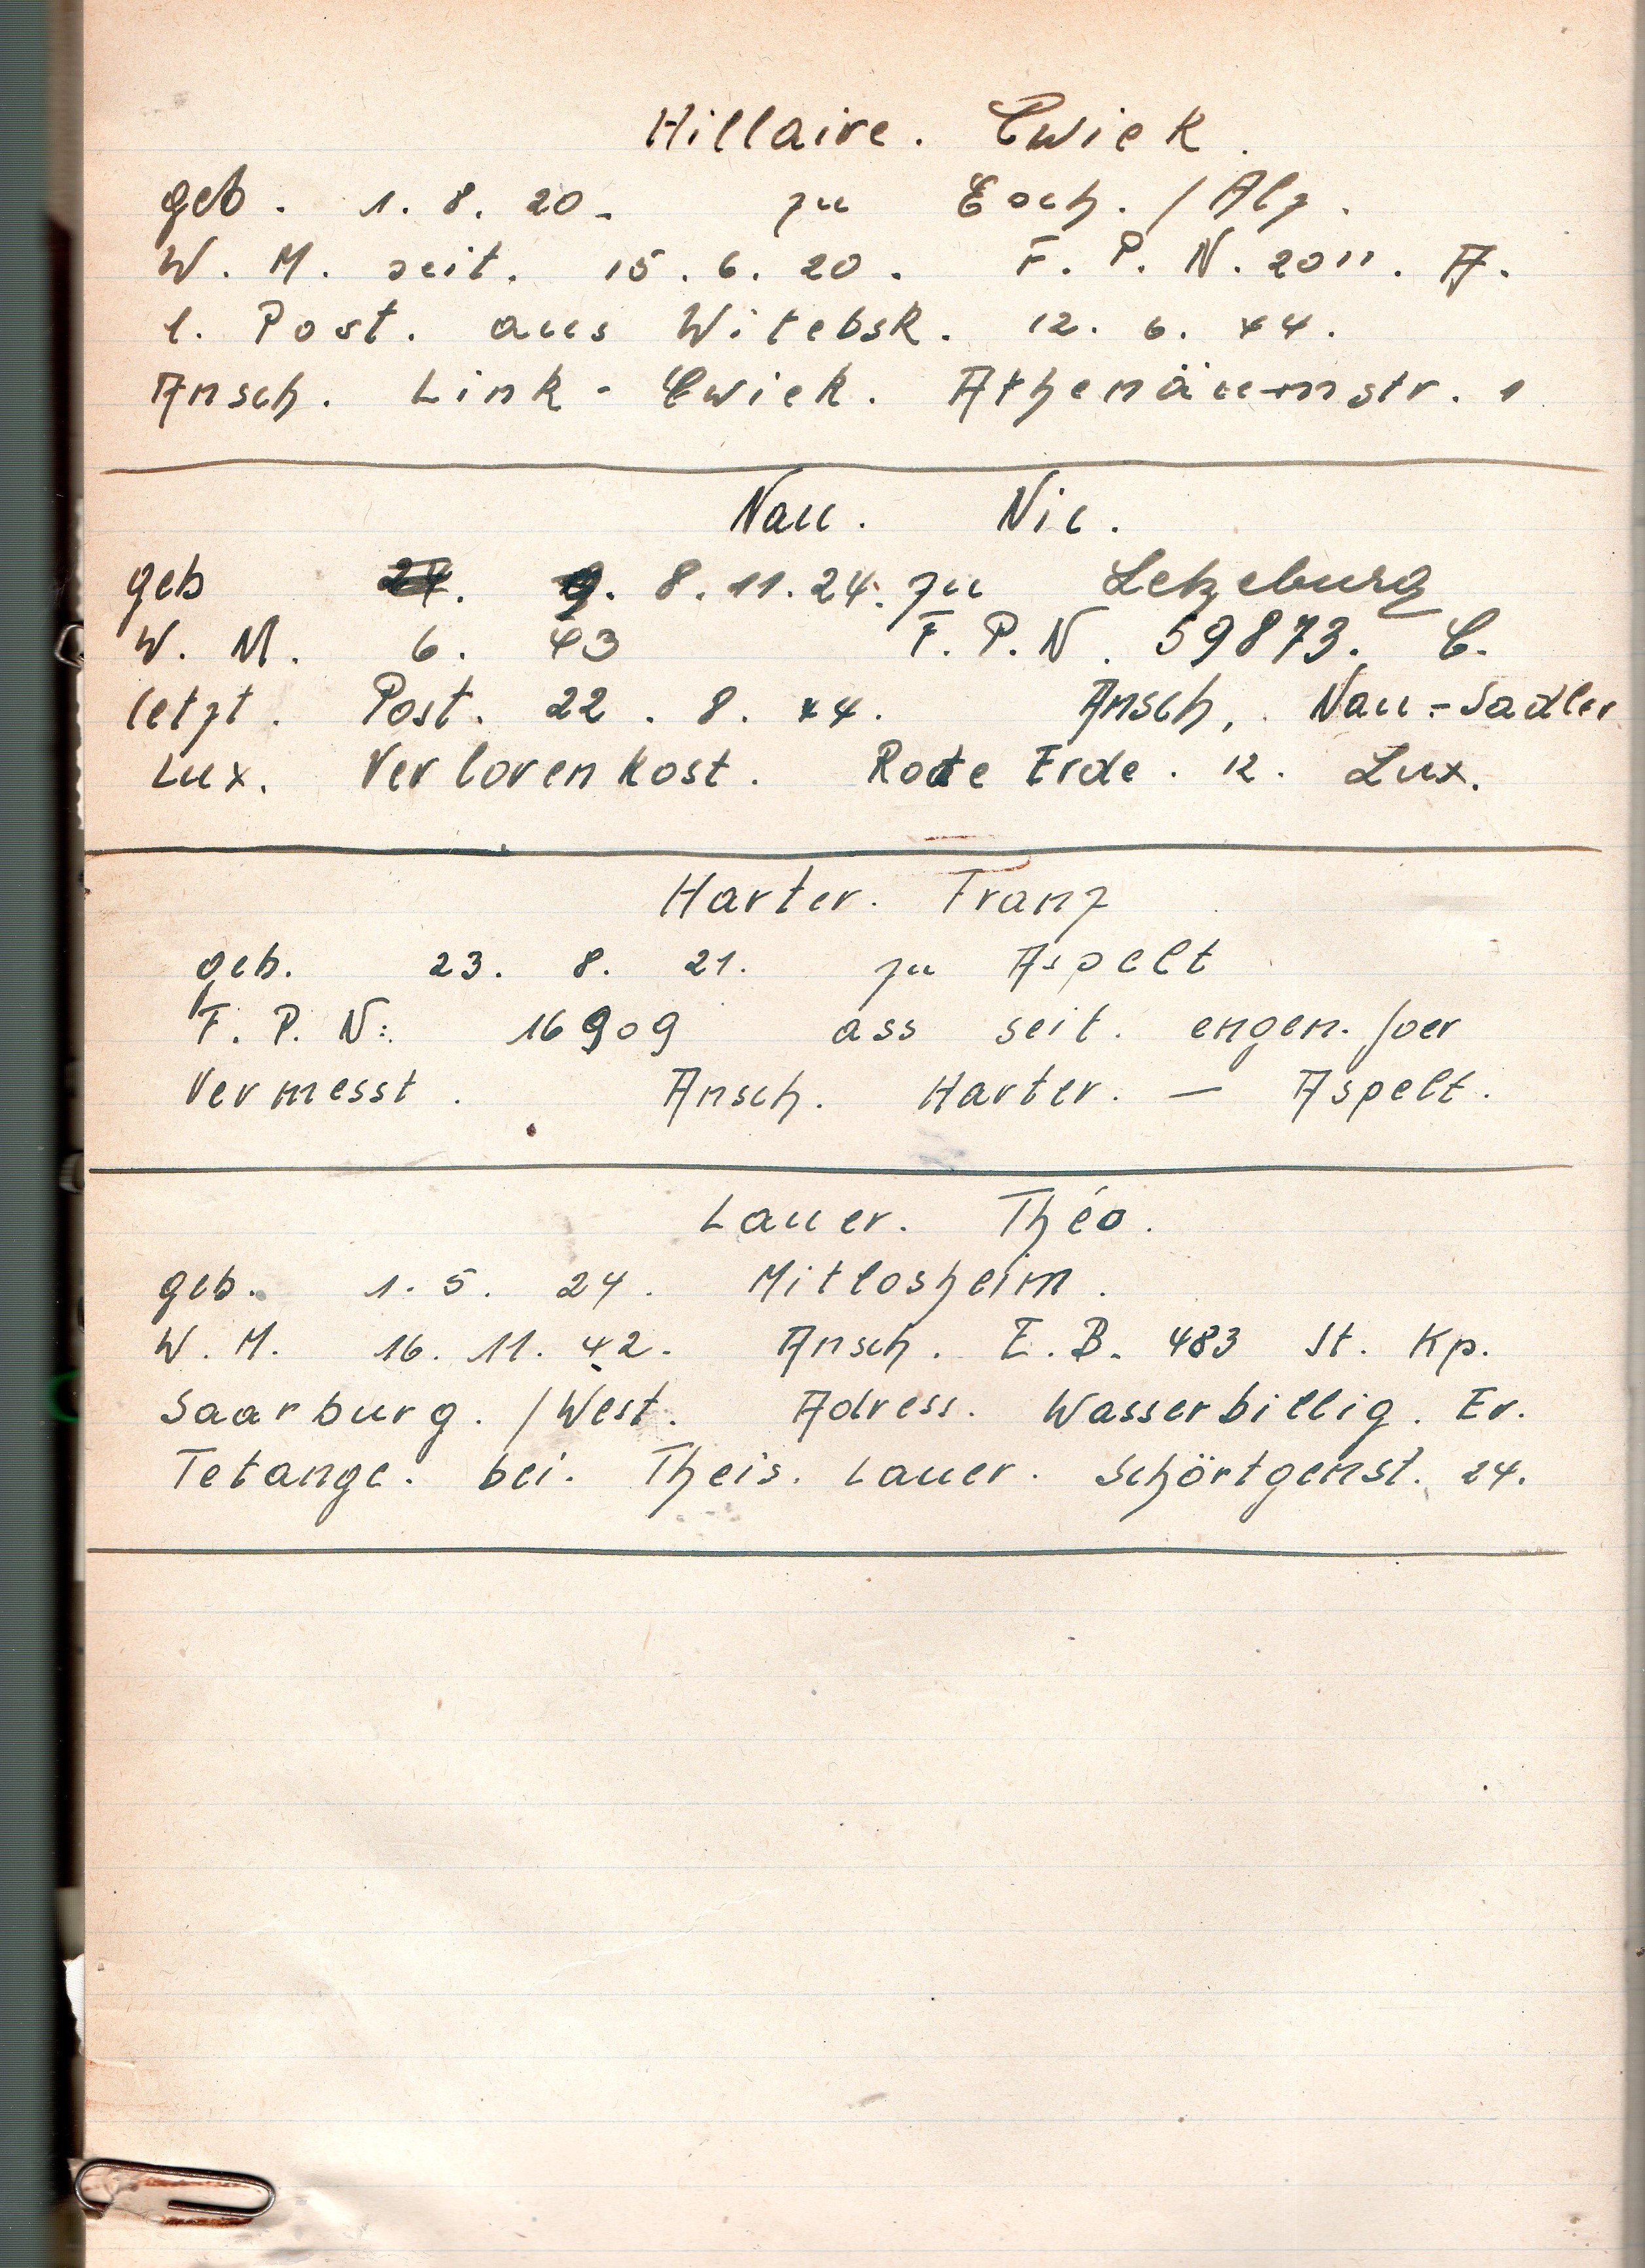 Hillaire. Cwiek.
geb. 1. 8. 20. zu Esch. /Alz.
W. M. seit. 15. 6. 20. F. P. N. 2011. A.
l. Post. aus Witebsk. 12. 6. 44.
Ansch. Link - Cwiek. Athenäumstr. 1
Nau. Nic.
geb 8. 11. 24. zu Letzeburg
W. M. 6. 43 F. P. N. 59873. C.
letzt. Post. 22. 8. 44. Ansch. Nau - Sadler
Lux. Verlorenkost. Rote Erde. 12. Lux.
Harter. Franz
geb. 23. 8. 21. zu Aspelt
F. P. N: 16909 ass seit. engen. /oer
Vermesst. Ansch. Harter. — Aspelt.
Lauer. Théo.
geb. 1. 5. 24. Mitlosheim.
W. M. 16. 11. 42. Ansch. E. B. 483 St. Kp.
Saarburg. /West. Adress. Wasserbillig. Er.
Tetange. bei. Theis. Lauer. Schörtgenst. 24.